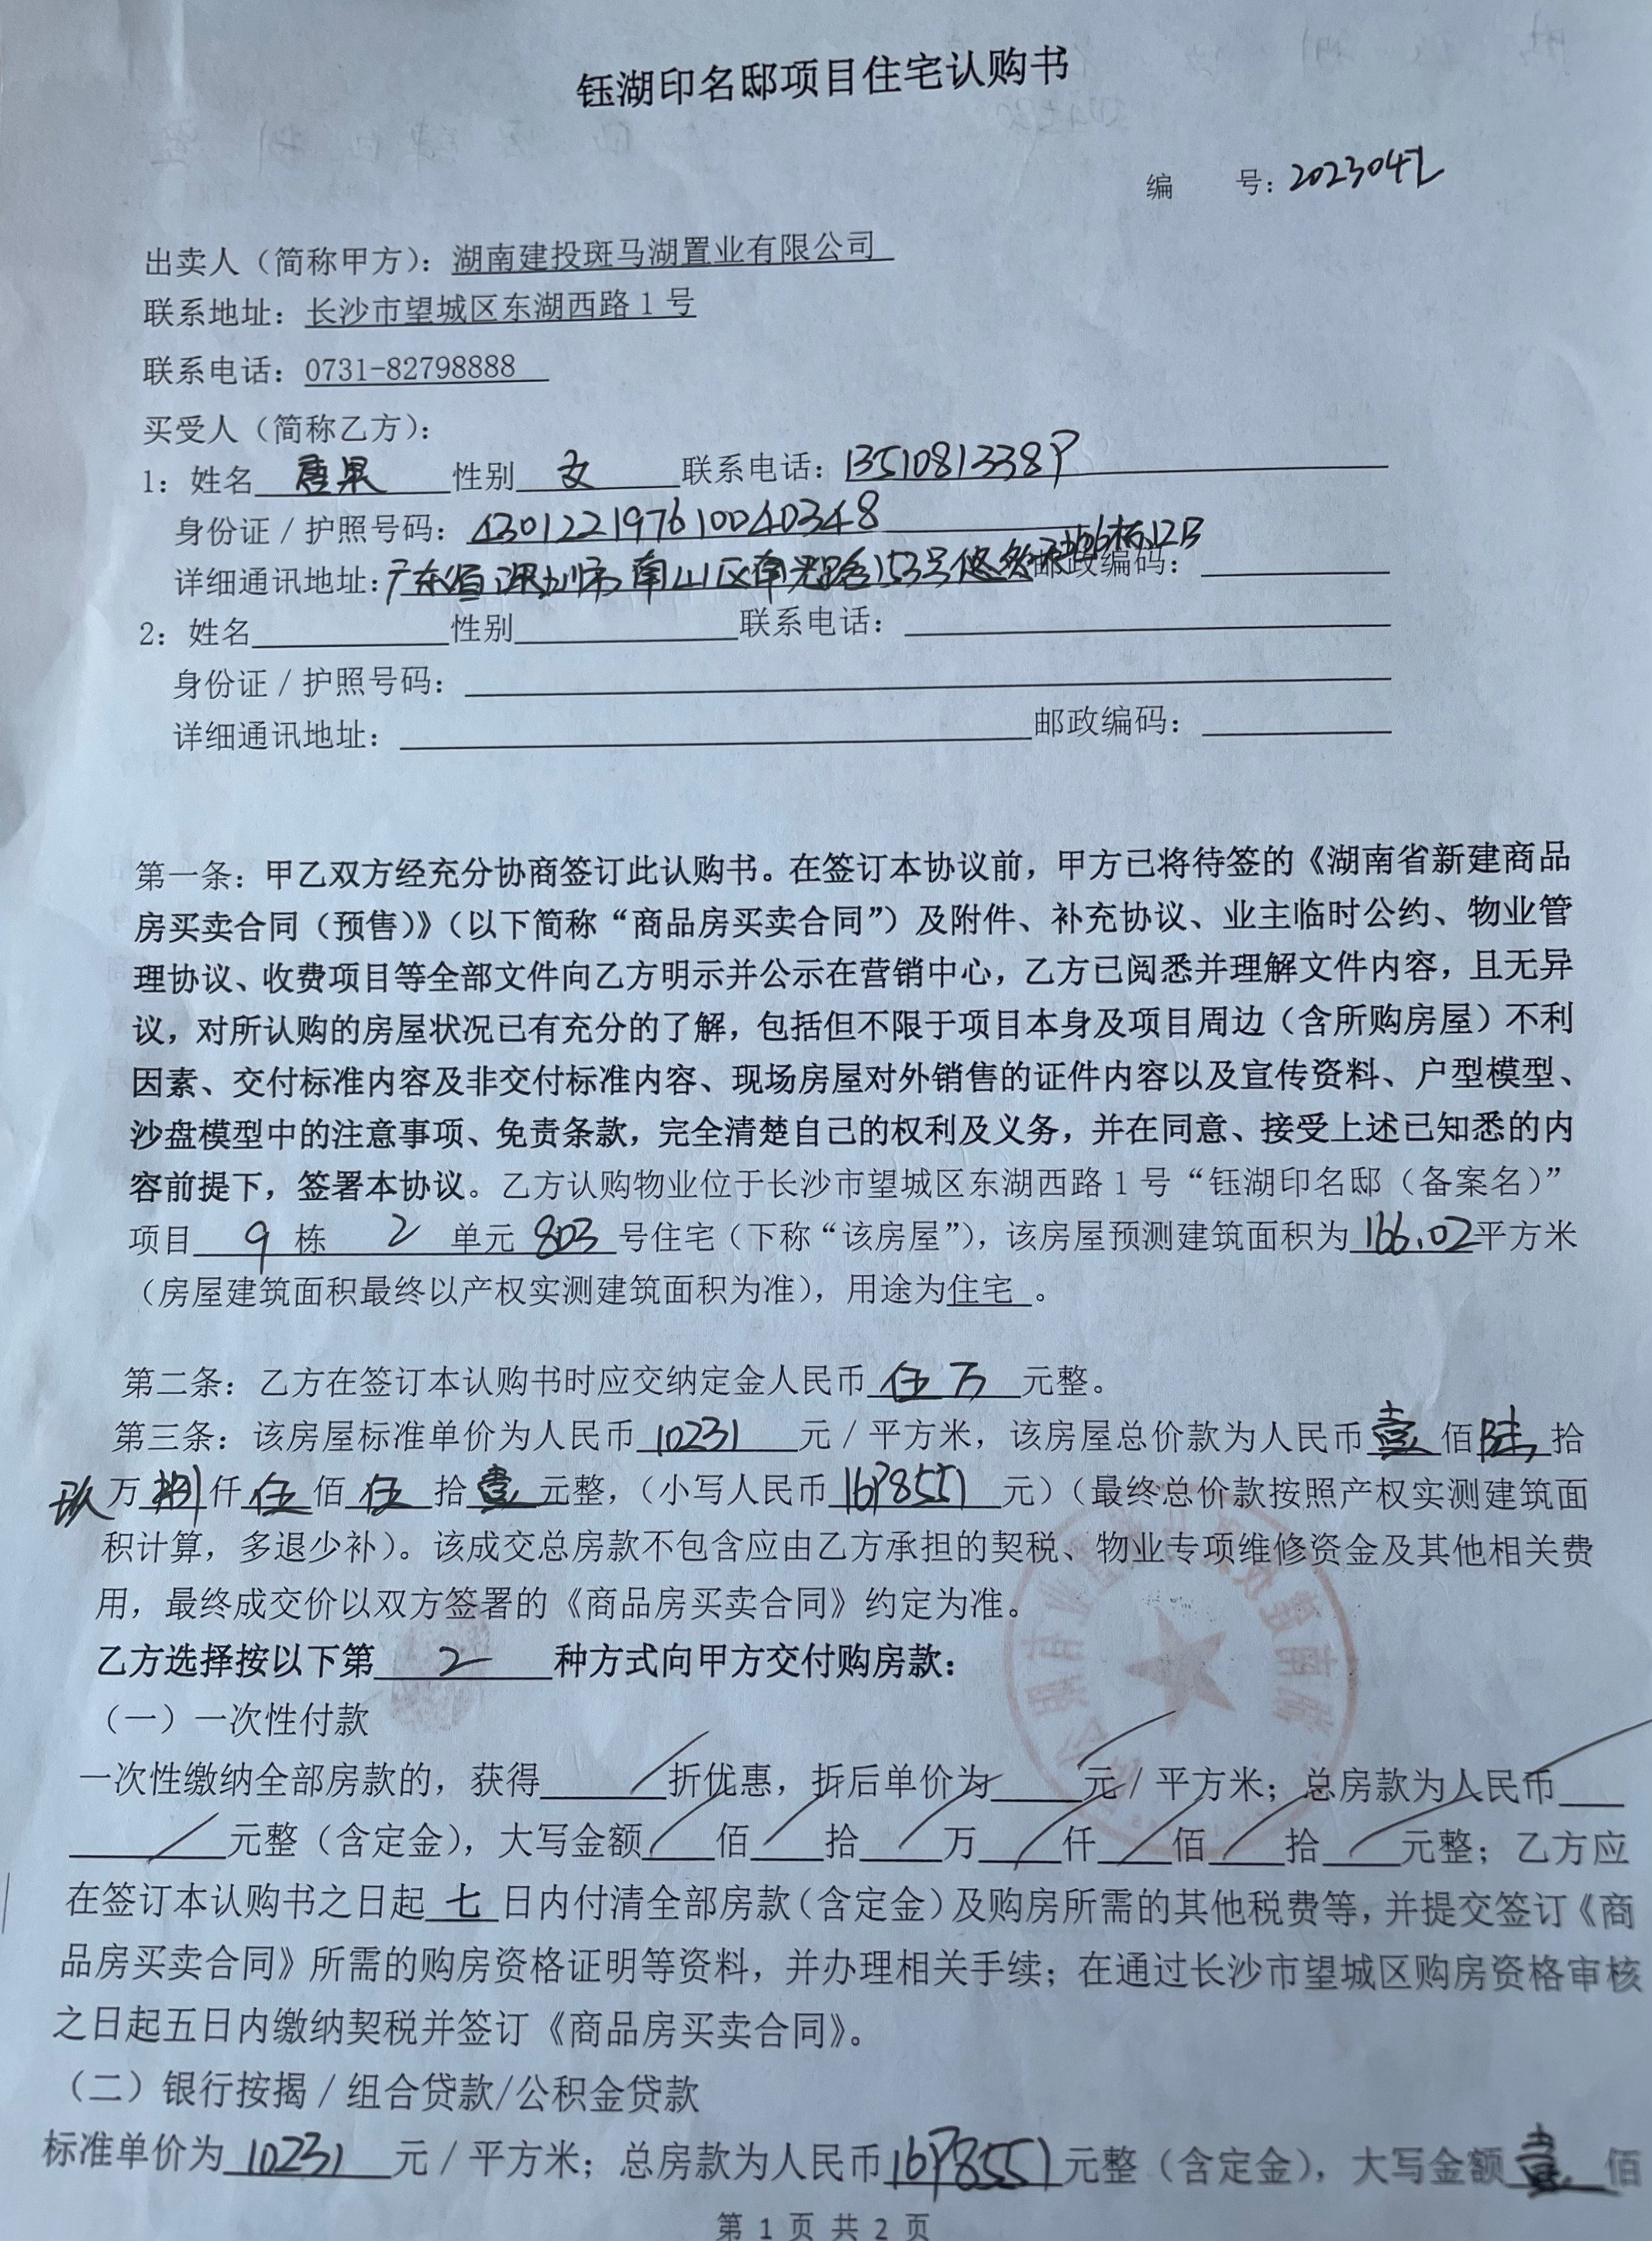 钰湖印名邸项目住宅认购书
编 号：2023042
出卖人（简称甲方）：湖南建投斑马湖置业有限公司
联系地址：长沙市望城区东湖西路 1 号
联系电话：0731-82798888
买受人（简称乙方）：
1：姓名 唐果 性别 女 联系电话：13510813389
身份证 / 护照号码：430122197610040348
详细通讯地址：广东省深圳市南山区南光路153号悠然天地6栋12B 邮政编码：
2：姓名 性别 联系电话：
身份证 / 护照号码：
详细通讯地址： 邮政编码：
第一条：甲乙双方经充分协商签订此认购书。在签订本协议前，甲方已将待签的《湖南省新建商品
房买卖合同（预售）》（以下简称“商品房买卖合同”）及附件、补充协议、业主临时公约、物业管
理协议、收费项目等全部文件向乙方明示并公示在营销中心，乙方已阅悉并理解文件内容，且无异
议，对所认购的房屋状况已有充分的了解，包括但不限于项目本身及项目周边（含所购房屋）不利
因素、交付标准内容及非交付标准内容、现场房屋对外销售的证件内容以及宣传资料、户型模型、
沙盘模型中的注意事项、免责条款，完全清楚自己的权利及义务，并在同意、接受上述已知悉的内
容前提下，签署本协议。乙方认购物业位于长沙市望城区东湖西路 1 号“钰湖印名邸（备案名）”
项目 9 栋 2 单元 803 号住宅（下称“该房屋”），该房屋预测建筑面积为 166.02 平方米
（房屋建筑面积最终以产权实测建筑面积为准），用途为住宅 。
第二条：乙方在签订本认购书时应交纳定金人民币 伍万 元整。
第三条：该房屋标准单价为人民币 10231 元 / 平方米，该房屋总价款为人民币 壹 佰 陆 拾
玖 万 捌 仟 伍 佰 伍 拾 壹 元整，（小写人民币 1698551 元）（最终总价款按照产权实测建筑面
积计算，多退少补）。该成交总房款不包含应由乙方承担的契税、物业专项维修资金及其他相关费
用，最终成交价以双方签署的《商品房买卖合同》约定为准。
乙方选择按以下第 2 种方式向甲方交付购房款：
（一）一次性付款
一次性缴纳全部房款的，获得 / 折优惠，折后单价为 / 元 / 平方米；总房款为人民币 /
/ 元整（含定金），大写金额 / 佰 / 拾 / 万 / 仟 / 佰 / 拾 / 元整；乙方应
在签订本认购书之日起 七 日内付清全部房款（含定金）及购房所需的其他税费等，并提交签订《商
品房买卖合同》所需的购房资格证明等资料，并办理相关手续；在通过长沙市望城区购房资格审核
之日起五日内缴纳契税并签订《商品房买卖合同》。
（二）银行按揭 / 组合贷款/公积金贷款
标准单价为 10231 元 / 平方米；总房款为人民币 1698551 元整（含定金），大写金额 壹 佰
第 1 页 共 2 页